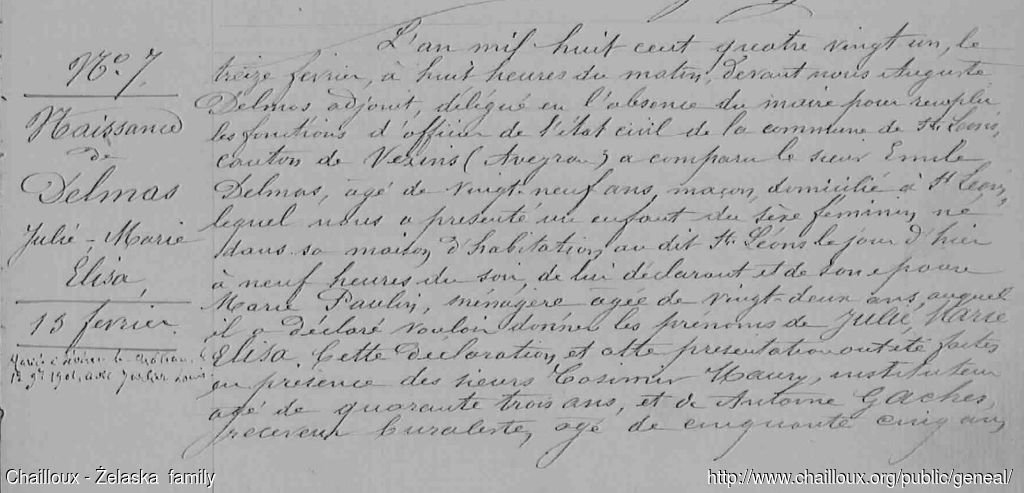 N° 7
Naissance
de
Delmas
Julie-Marie
Elisa,
13 fevrier.
L'an mil huit cent quatre vingt un, le
treize fevrier, à huit heures du matin, devant nous Auguste
Delmas adjoint, délégué en l'absence du maire pour remplir
les fonctions d'officier de l'état civil de la commune de St. Léons,
canton de Vezins (Aveyron) a comparu le sieur Emile
Delmas, âgé de vingt-neuf ans, maçon, domicilié à St Léons,
lequel nous a presenté un enfant du sexe féminin, né
dans sa maison d'habitation, au dit St. Léons le jour d'hier
à neuf heures du soir, de lui déclarant et de son epouse
Marie Paulin, ménagère agée de vingt-deux ans, auquel
il a déclaré vouloir donner les prénoms de Julie Marie
Elisa. Cette déclaration, et cette presentation ont été faites
en présence des sieurs Casimir Maury, instituteur
agé de quarante trois ans, et de Antoine Gaches,
receveur buraliste, agé de cinquante cinq ans,
Chailloux - Żelaska family
http://www.chailloux.org/public/geneal/